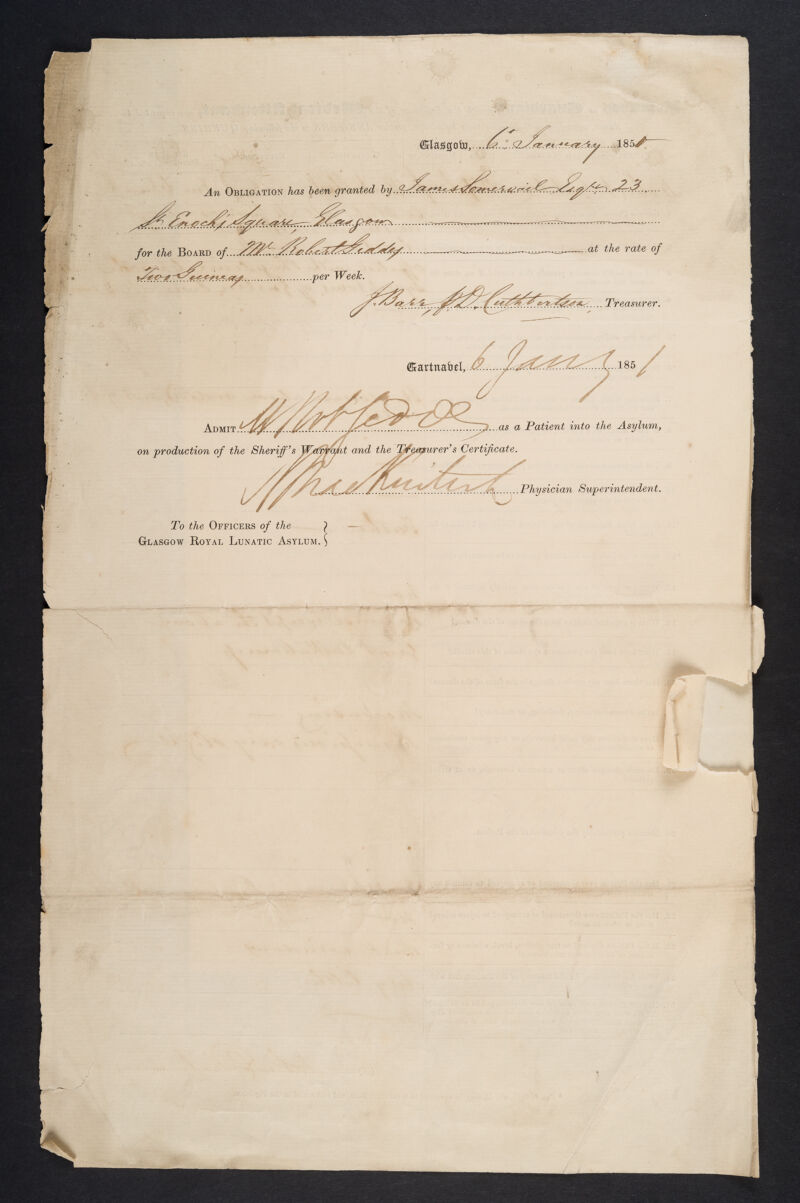 Glasgow, 6th January 1851
An Obligation has been granted by James Somervail Esqre 23
St Enoch's Square Glasgow
for the Board of Mr Robert Geddes at the rate of
Two Guineas per Week.
J. Barr, J. D. Cuthbertson Treasurer.
Gartnavel, 6 Jany 1851
Admit Mr Robt Geddes as a Patient into the Asylum,
on production of the Sheriff's Warrant and the Treasurer's Certificate.
Physician Superintendent.
To the Officers of the
Glasgow Royal Lunatic Asylum.